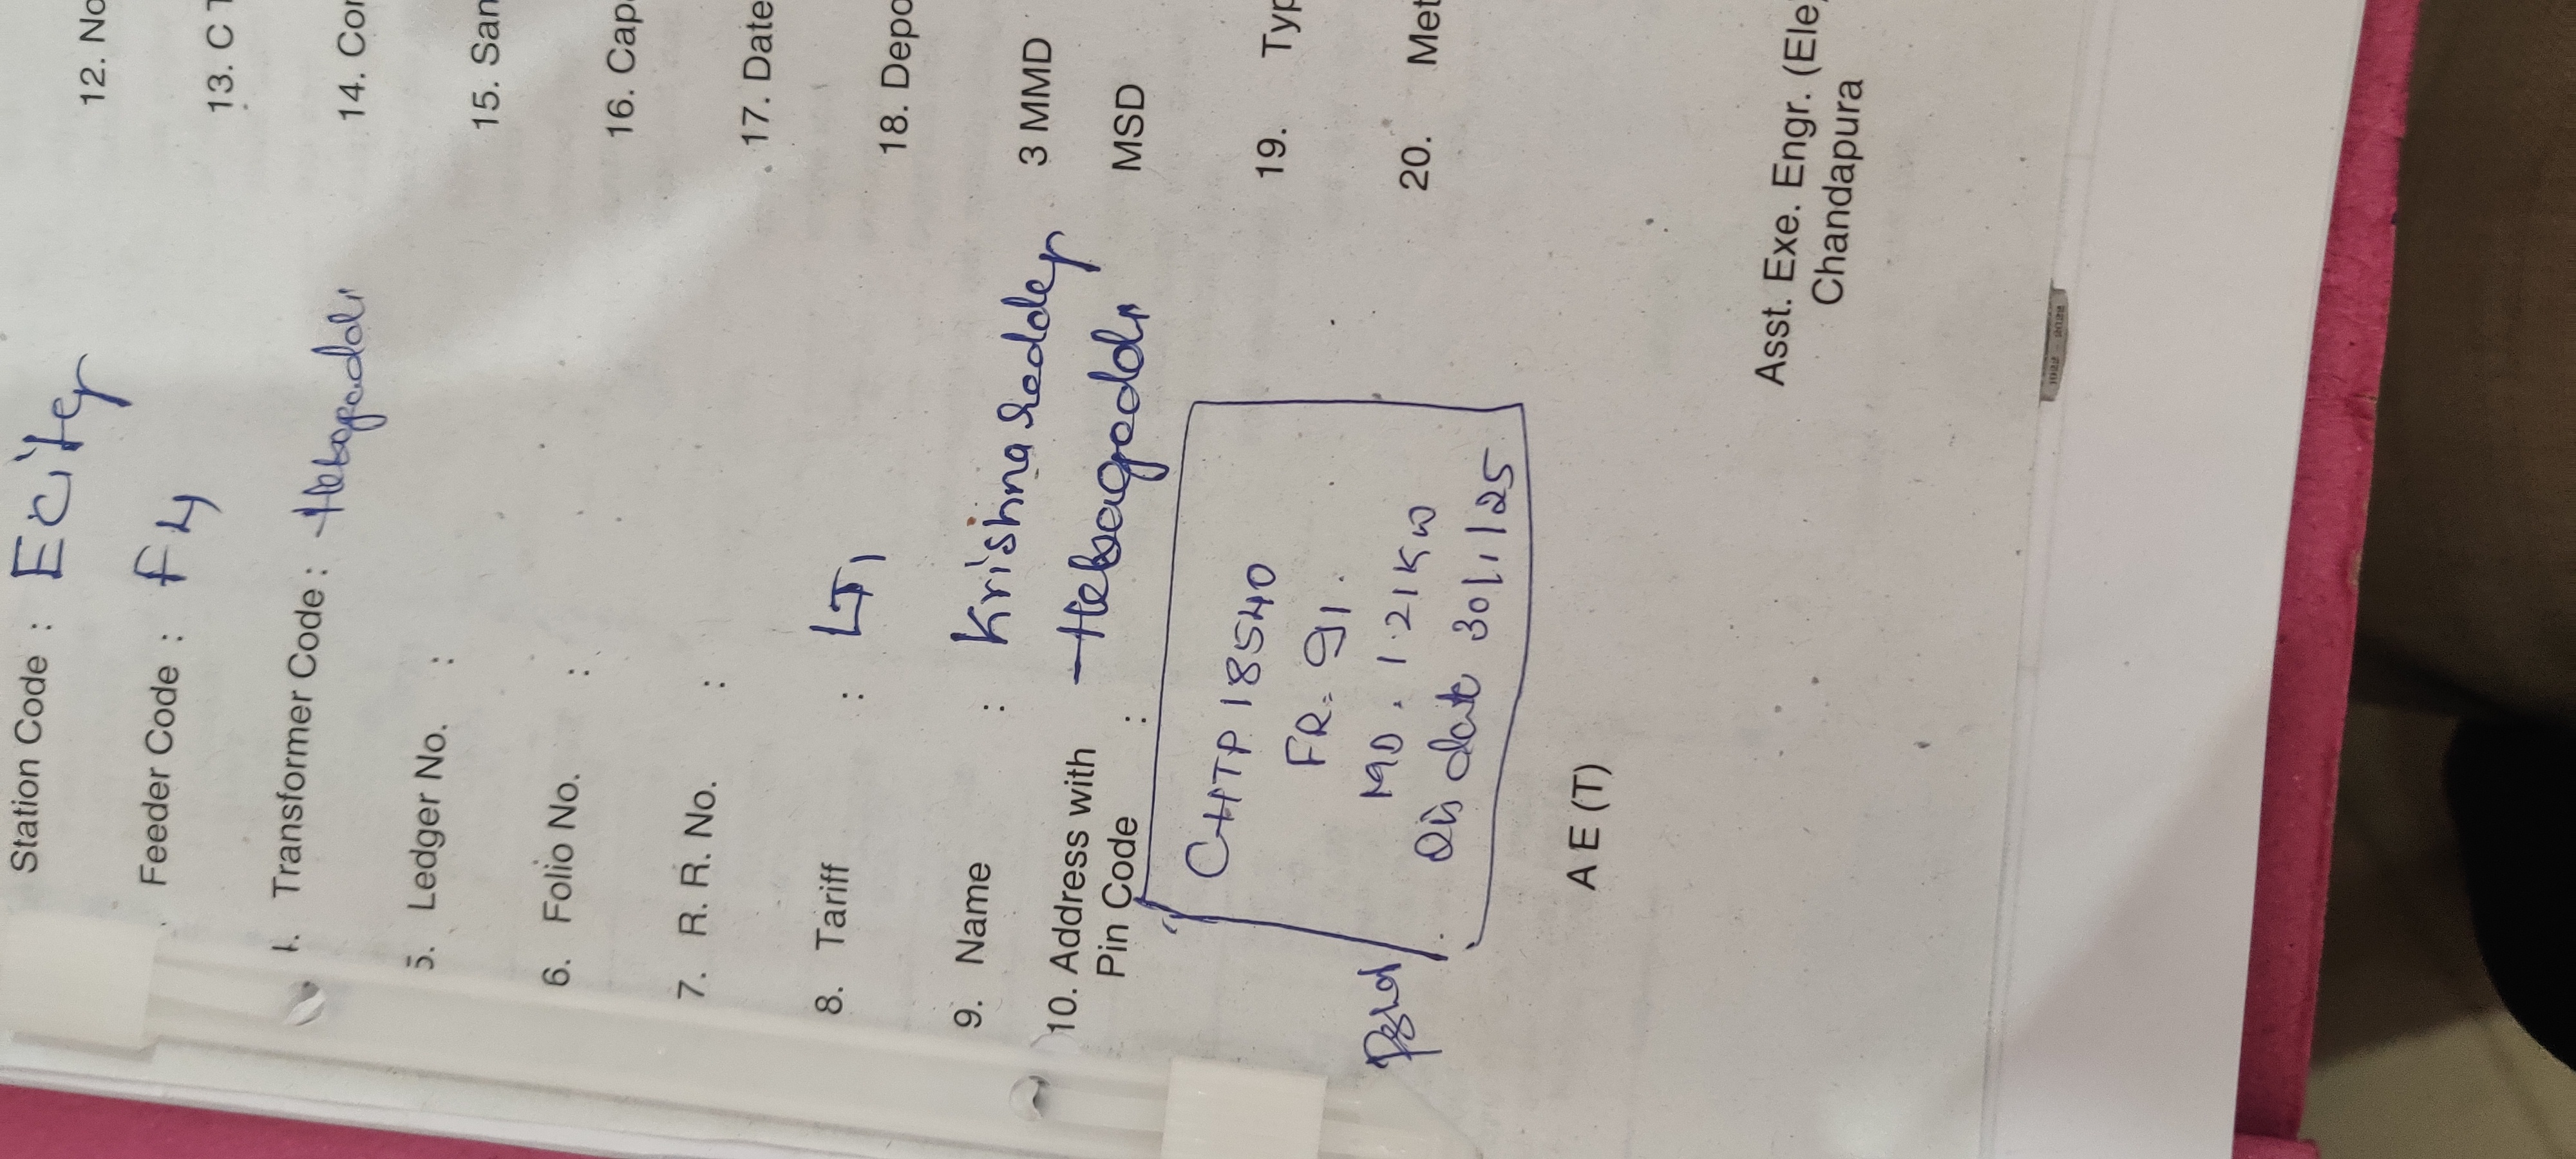 Station Code : Ecity
Feeder Code : F4
Transformer Code : Hebagoddi
5. Ledger No. :
6. Folio No. :
7. R. R. No. :
8. Tariff : LT1
9. Name : Krishnareddy
10. Address with Hebbagoddi
Pin Code :
CHTP 18540
FR - 91.
MD . 1.21KW
Dis date 30/1/25
A E (T)
12. No
13. C T
14. Con
15. San
16. Cap
17. Date
18. Depo
3 MMD
MSD
19. Typ
20. Met
Asst. Exe. Engr. (Ele
Chandapura